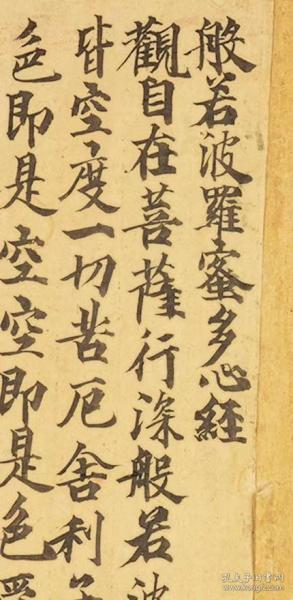 般若波羅蜜多心経
觀自在菩薩行深般若波
皆空度一切苦厄舍利子
色即是空空即是色受
孔夫子旧书网